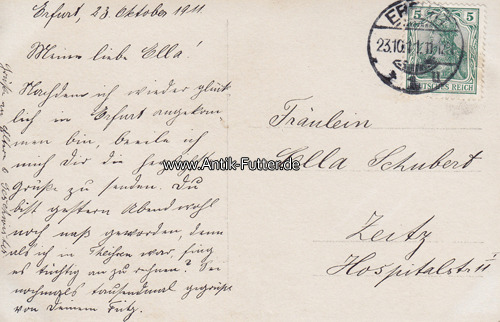 Erfurt, 23. Oktober 1911
Meine liebe Ella!
Nachdem ich wieder glück
lich in Erfurt angekom
men bin, beeile ich
mich Dir die herzlichsten
Grüße zu senden. Du
bist gestern Abend wohl
noch naß geworden, denn
als ich in Theißen war, fing
es tüchtig an zu regnen? Sei
nochmals tausendmal gegrüßt
von Deinem Fritz.
Grüße an Eltern &
Fräulein
Ella Schubert
Zeitz
Hospitalstr. 11
5 5
DEUTSCHES REICH
23.10.11
www.Antik-Futter.de